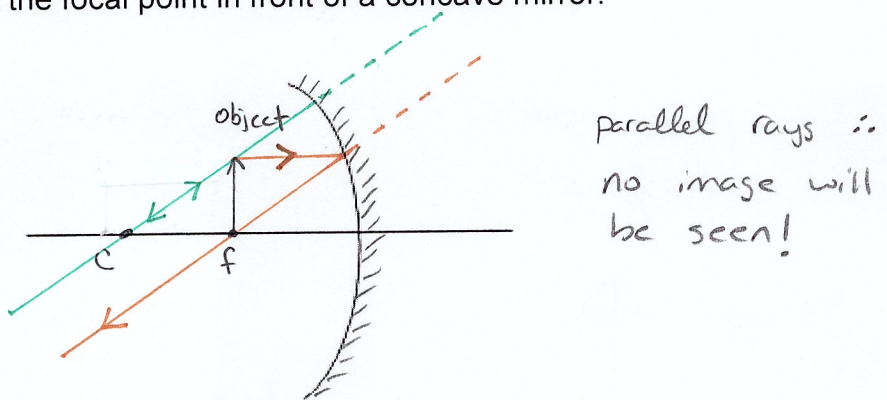 the focal point in front of a concave mirror.
object
C
f
parallel rays ∴
no image will
be seen!